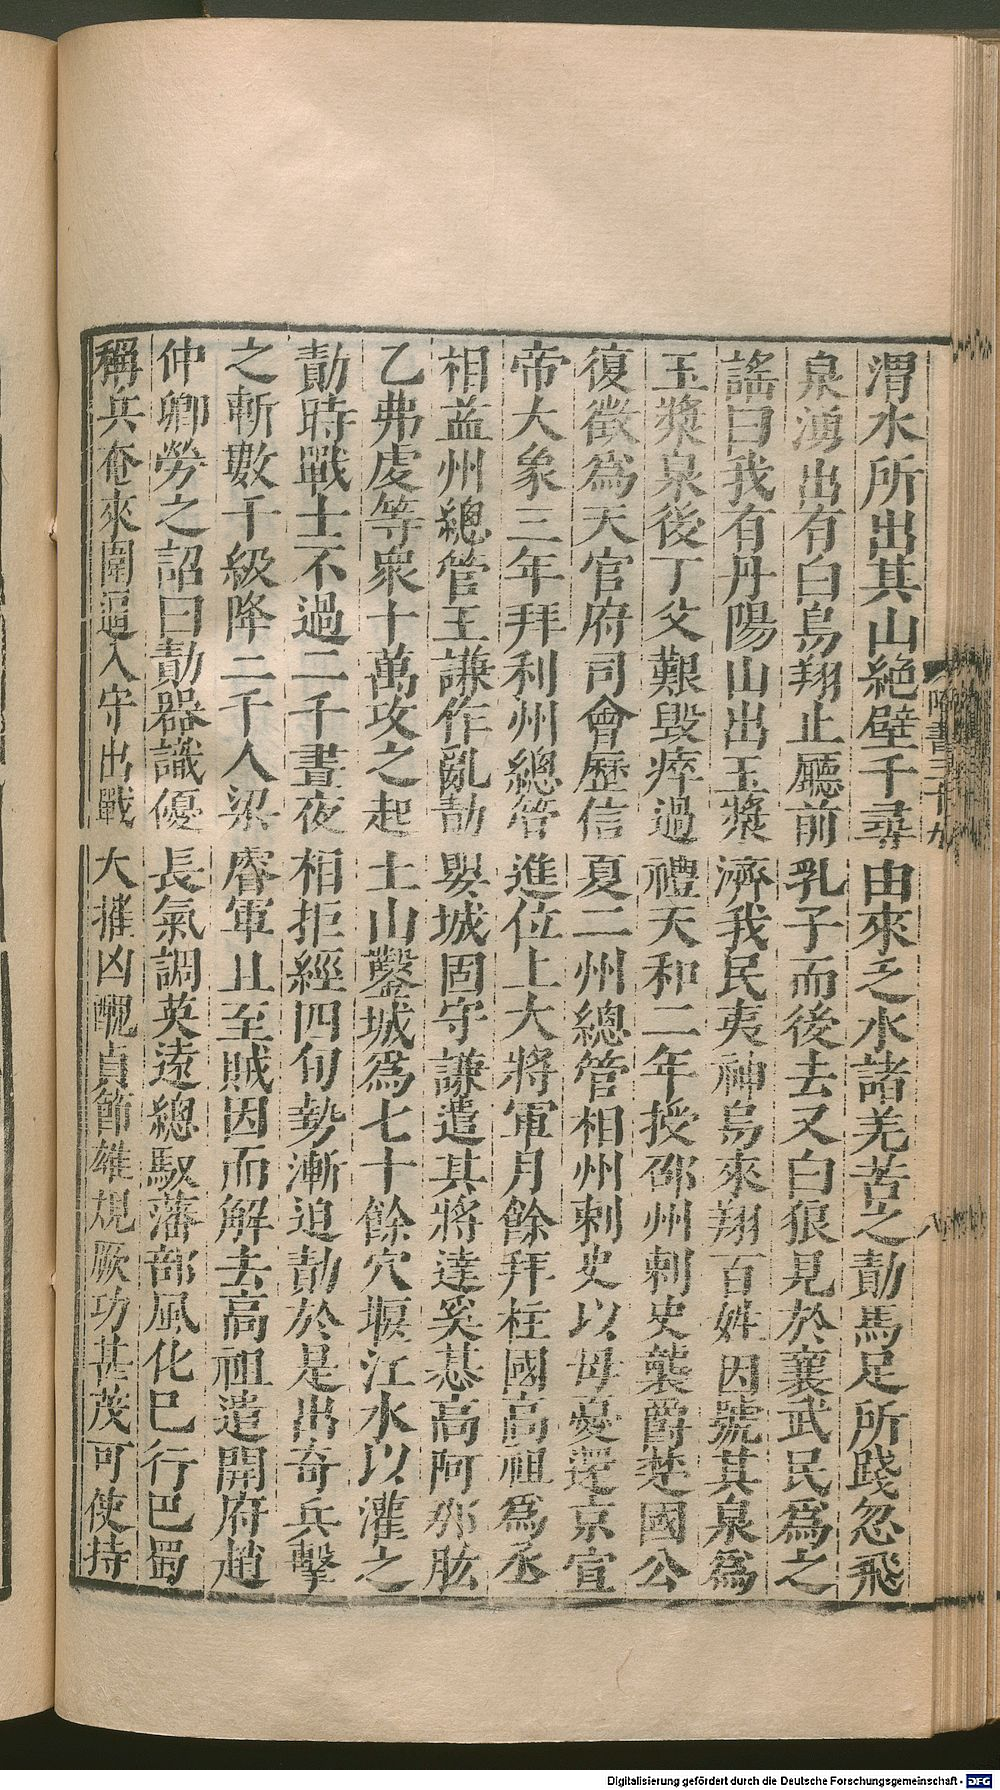 渭水所出其山絶壁千尋由來乏水諸羌苦之勣馬足所踐忽飛
泉湧出有白烏翔止廳前乳子而後去又白狼見於襄武民爲之
謠曰我有丹陽山出玉漿濟我民夷神烏來翔百姓因號其泉爲
玉漿泉後丁父艱毀瘁過禮天和二年授邵州刺史襲爵楚國公
復徵爲天官府司會歷信夏二州總管相州刺史以母憂還京宣
帝大象三年拜利州總管進位上大將軍月餘拜柱國高祖爲丞
相益州總管王謙作亂勣嬰城固守謙遣其將達奚惎高阿那肱
乙弗虔等衆十萬攻之起土山鑿城爲七十餘穴堰江水以灌之
勣時戰士不過二千晝夜相拒經四旬勢漸迫勣於是出奇兵擊
之斬數千級降二千人梁睿軍且至賊因而解去高祖遣開府趙
仲卿勞之詔曰勣器識優長氣調英遠總馭藩部風化已行巴蜀
稱兵奄來圍逼入守出戰大摧凶醜貞節雄規厥功甚茂可使持
隋書三十九
八
Digitalisierung gefördert durch die Deutsche Forschungsgemeinschaft - DFG